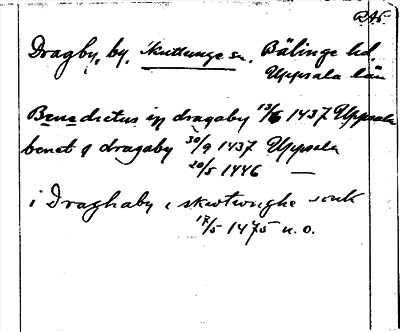 RAP.
Dragby, by, Skuttunge sn. Bälinge hd.
Uppsala län
Benedictus in dragaby 13/6 1437 Uppsala
benet i dragaby 30/9 1437 Uppsala
20/5 1446 —
i Draghaby i skwtwnghe sonk
17/5 1475 u. o.